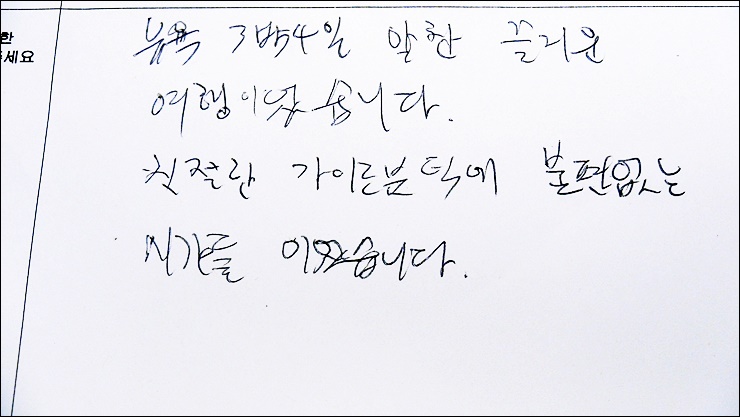 한
세요
뉴욕 3박4일 알찬 즐거운
여행이었습니다.
친절한 가이드분 덕에 불편없는
시간들 이었습니다.